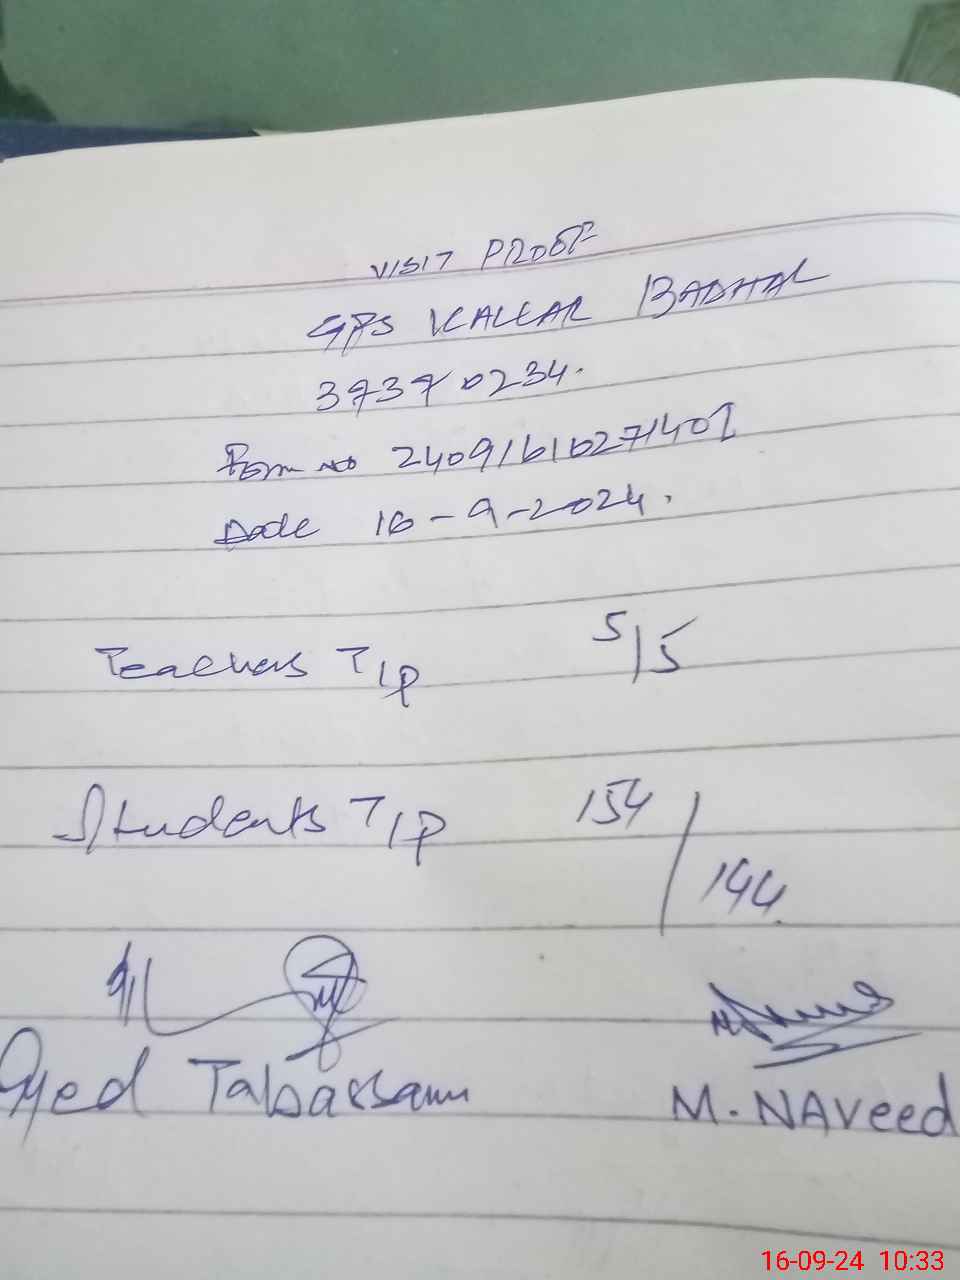 VISIT PROOF
GPS KALLAR BADHAL
37370234.
Form no 24091610271401
Date 16-9-2024.
Teachers T/P 5/5
Students T/P 154/144
Syed Tabassam
M. NAveed
16-09-24 10:33